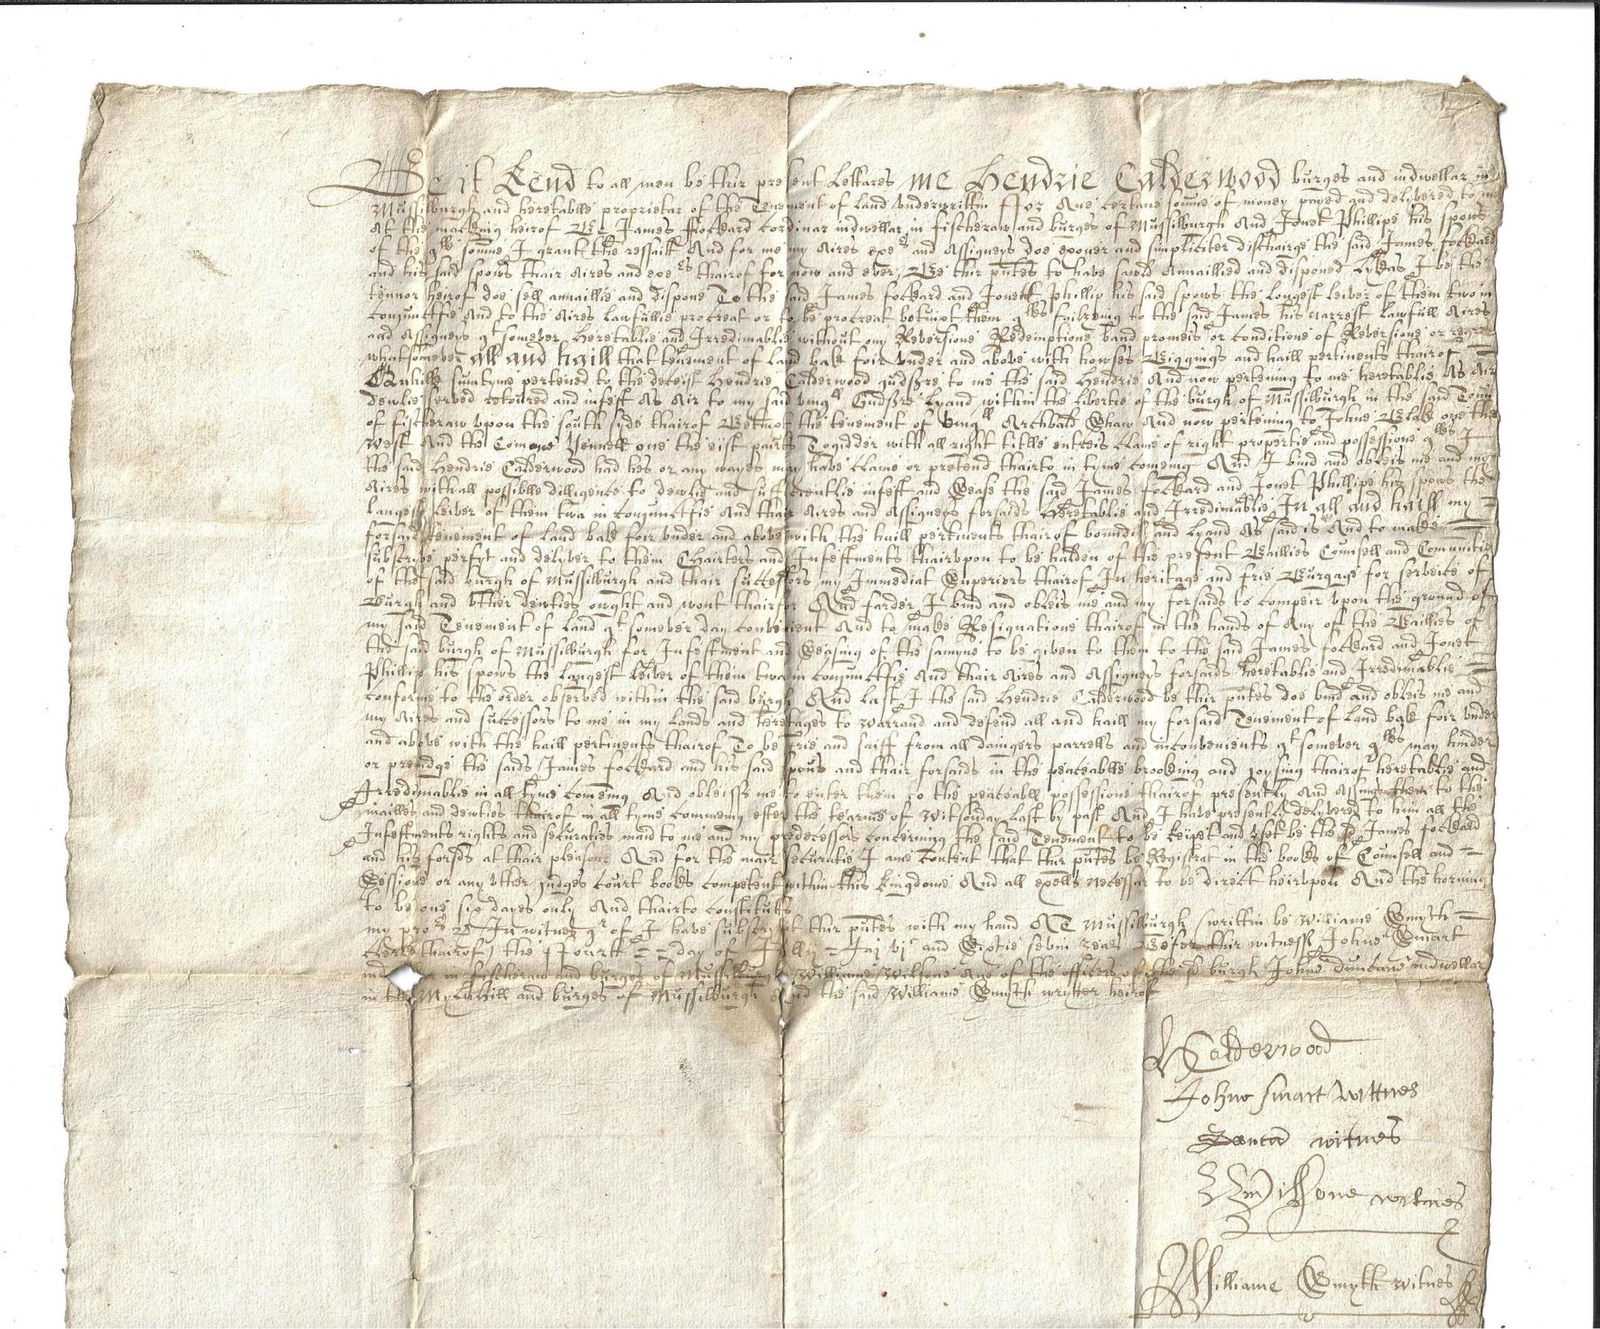 Be it kend to all men be thir present Lettares me Hendrie Calderwood burges and indwellar in
Mussilburgh and heretablle proprietar of the Tenement of Land underwrittin ffor Ane certane soume of money payed and delivered to me
At the making heirof Be James ffockard Cordinar indwellar in fischeraw and burges of Mussilburgh And Jonet Phillipe his spows
of the qlk soume I grant the ressait And for me my Aires exers and Assigneys doe exoner and simpliciter discharge the said James fockard
and his said spows thair Aires and exers thairof for now and ever, Be thir puntes to have sauld Annaillied and disponed Lykas I be the
tennor heirof doe sell annaillie and dispone To the said James fockard and Jonett Phillip his said spows the Longest leiver of them two in
conjunctfie And to the Aires Lawfullie procreat or to be procreat betuixt them qlks failyeing to the said James his narrest Lawfull Aires
and Assigneys qt somever heretablie and Irredimablie without ony Reversione Redemptione band promeis or conditione of Reversione or regres
whatsomever all and haill that tenement of Land bak foir under and above with howses Biggings and haill pertinents thairof
Quhilk sumtyme pertened to the deceist Hendrie Calderwood gudsre to me the said Hendrie And now pertening to me heretablie As Air
dewlie served retoured and infeft As Air to my said umqll Gudsre Lyand within the libertie of the burgh of Mussilburgh in the said Toun
of fischeraw upon the south syde thairof Betuixt the tenement of umqll Archbald Shaw And now perteining to Johne Blak one the
West And the Comone Vennell one the eist pairts Togidder with all right titlle entreis clame of right propertie and possessione qlks I
the said Hendrie Calderwood had hes or any wayes may have clame or pretend thairto in tyme comeing And I bind and obleis me and my
Aires with all possiblle dilligence to dewlie and sufficientlie infeft and Sease the said James fockard and Jonet Phillipe his spows the
langest leiver of them twa in conjunctfie And thair Aires and Assigneys forsaids Heretablie and Irredimablie In all and haill my
forsaid tenement of Land bak foir under and above with the haill pertinents thairof boundit and Lyand As said is And to make
subscrybe perfyt and delyver to them Chairters and Infeftments thairupon to be halden of the present Baillies Counsell and Communitie
of the said burgh of Mussilburgh and thair successors my Immediat Superiors thairof In heritage and frie Burgage for serveice of
Burgh and uther dewties owght and wont thairfor And farder I bind and obleis me and my forsaids to compeir upon the ground of
my said Tenement of Land qt somever day convenient And to make Resignatione thairof in the hands of Any of the Baillies of
the said burgh of Mussilburgh for Infeftment and Seasing of the samyne to be given to them to the said James fockard and Jonet
Phillip his spows the Langest leiver of them twa in conjunctfie And thair Aires and Assigneys forsaids heretablie and Irredimablie
conforme to the order observed within the said burgh And Last I the said Hendrie Calderwood be thir puntes doe bind and obleis me and
my Aires and successors to me in my Lands and heretages to Warrand and defend all and haill my forsaid Tenement of Land bak foir under
and above with the haill pertinents thairof To be frie and saiff from all daingers parrells and inconvenients qt somever qlks may hinder
or prejudge the saids James fockard and his said spous and thair forsaids in the peaceablle brooking and joysing thairof heretablie and
Irredimablie in all tyme comeing And obleissis me to enter them to the peaceablle possessione thairof presently And Assings them to the
mailles and dewties thairof in all tyme comeing efter the tearme of Witsonday Last by past And I have presently delyvered to him all the
Infeftments rights and securaties maid to me and my predecessors concerning the said Tenement to be keipet and usef be the sd James fockard
and his forsds at thair pleasour And for the mair securatie I ame content that thir puntes be Registrat in the books of Counsell and
Sessione or any uther judges court books competent within this kingdome And all exells necessar to be direct heirupon And the horning
to be one six dayes only And thairto constituts
my prors &c In witnes qrof I have subscryvit thir puntes with my hand At Mussilburgh (writtin be Williame Smyth
Clerk thairof) the flourtt day of Jully Jaj vjc and Sixtie sevin Zeas Befor thir witness Johne Smart
in fischeraw and burges of Mussilburgh Williame Wilsone Ane of the officers of the sd burgh Johne Duncane indwellar
in the Mylnhill and burges of Mussilburgh And the said Williame Smyth wrytter heirof
H Calderwood
Johne smart witnes
Duncan witnes
W Wilsone witnes
Williame Smyth witnes